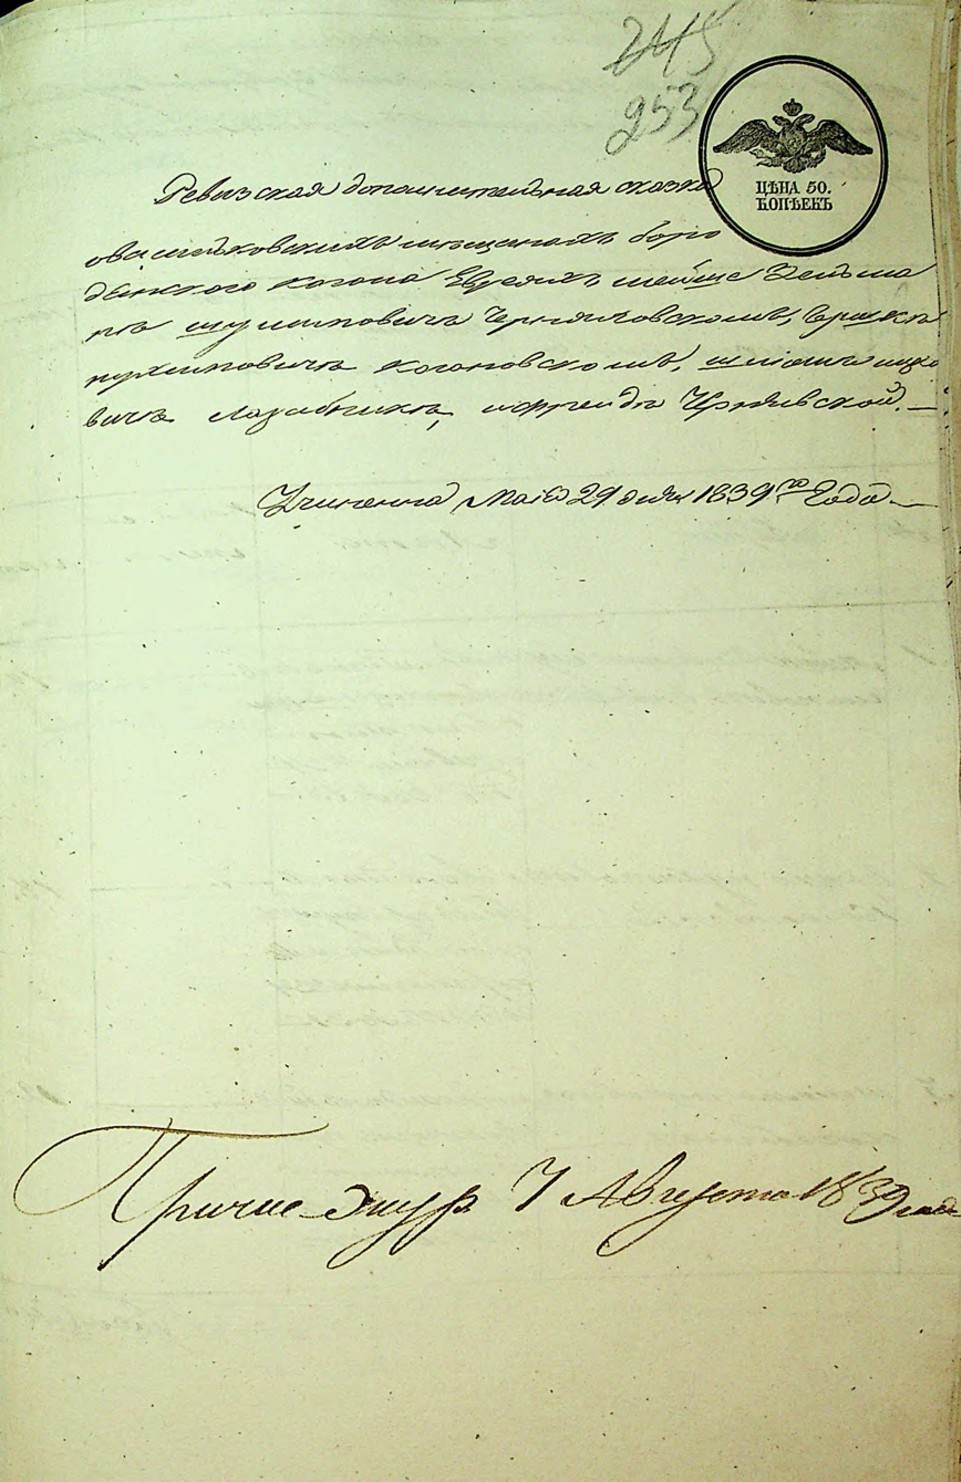 245
253
ЦѢНА 50.
КОПѢЕКЪ
Ревизская дополнительная сказка
о васильковскихъ мещанахъ боро
дянского кагала Евреяхъ мейше Зельма
нѣ шулимовичѣ Черняховскомъ, Ершкѣ
нухимовичѣ Кагановскомъ, шліомѣ ицко
вичѣ Лазебникѣ, и фрейдѣ Чернявской.
Учиненна Маія 29 дня 1839го Года
7 Августа 1839 года